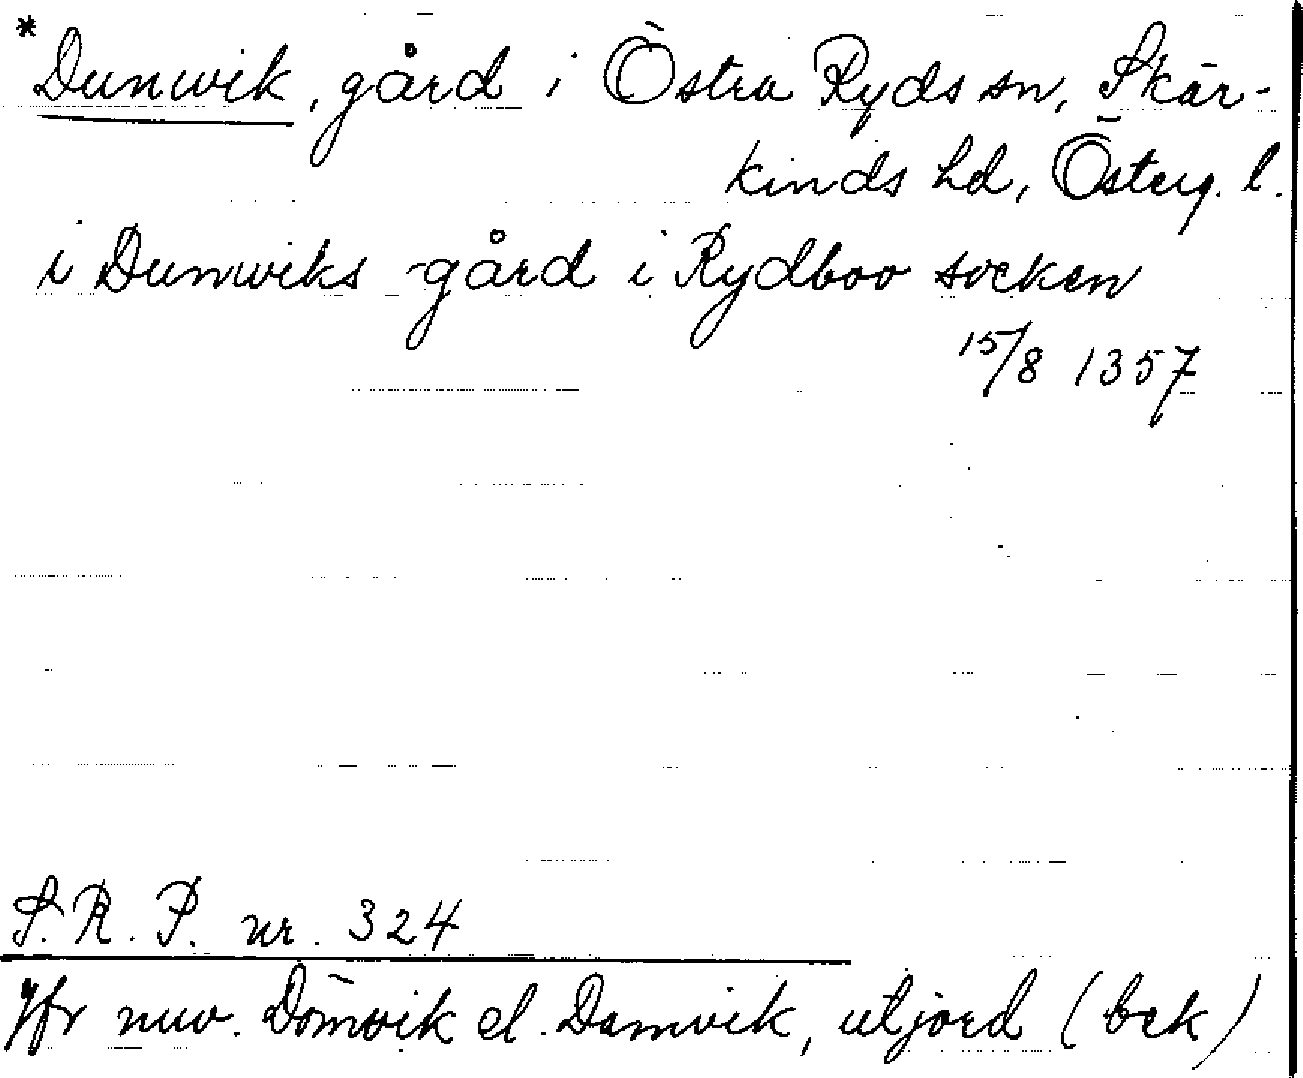 *Dunwik, gård i Östra Ryds sn, Skär-
kinds hd, Österg. l.
i Dunwiks gård i Rydboo socken
15/8 1357
S.R.P. nr. 324
Jfr nuv. Dömvik el. Damvik, utjord (bek)